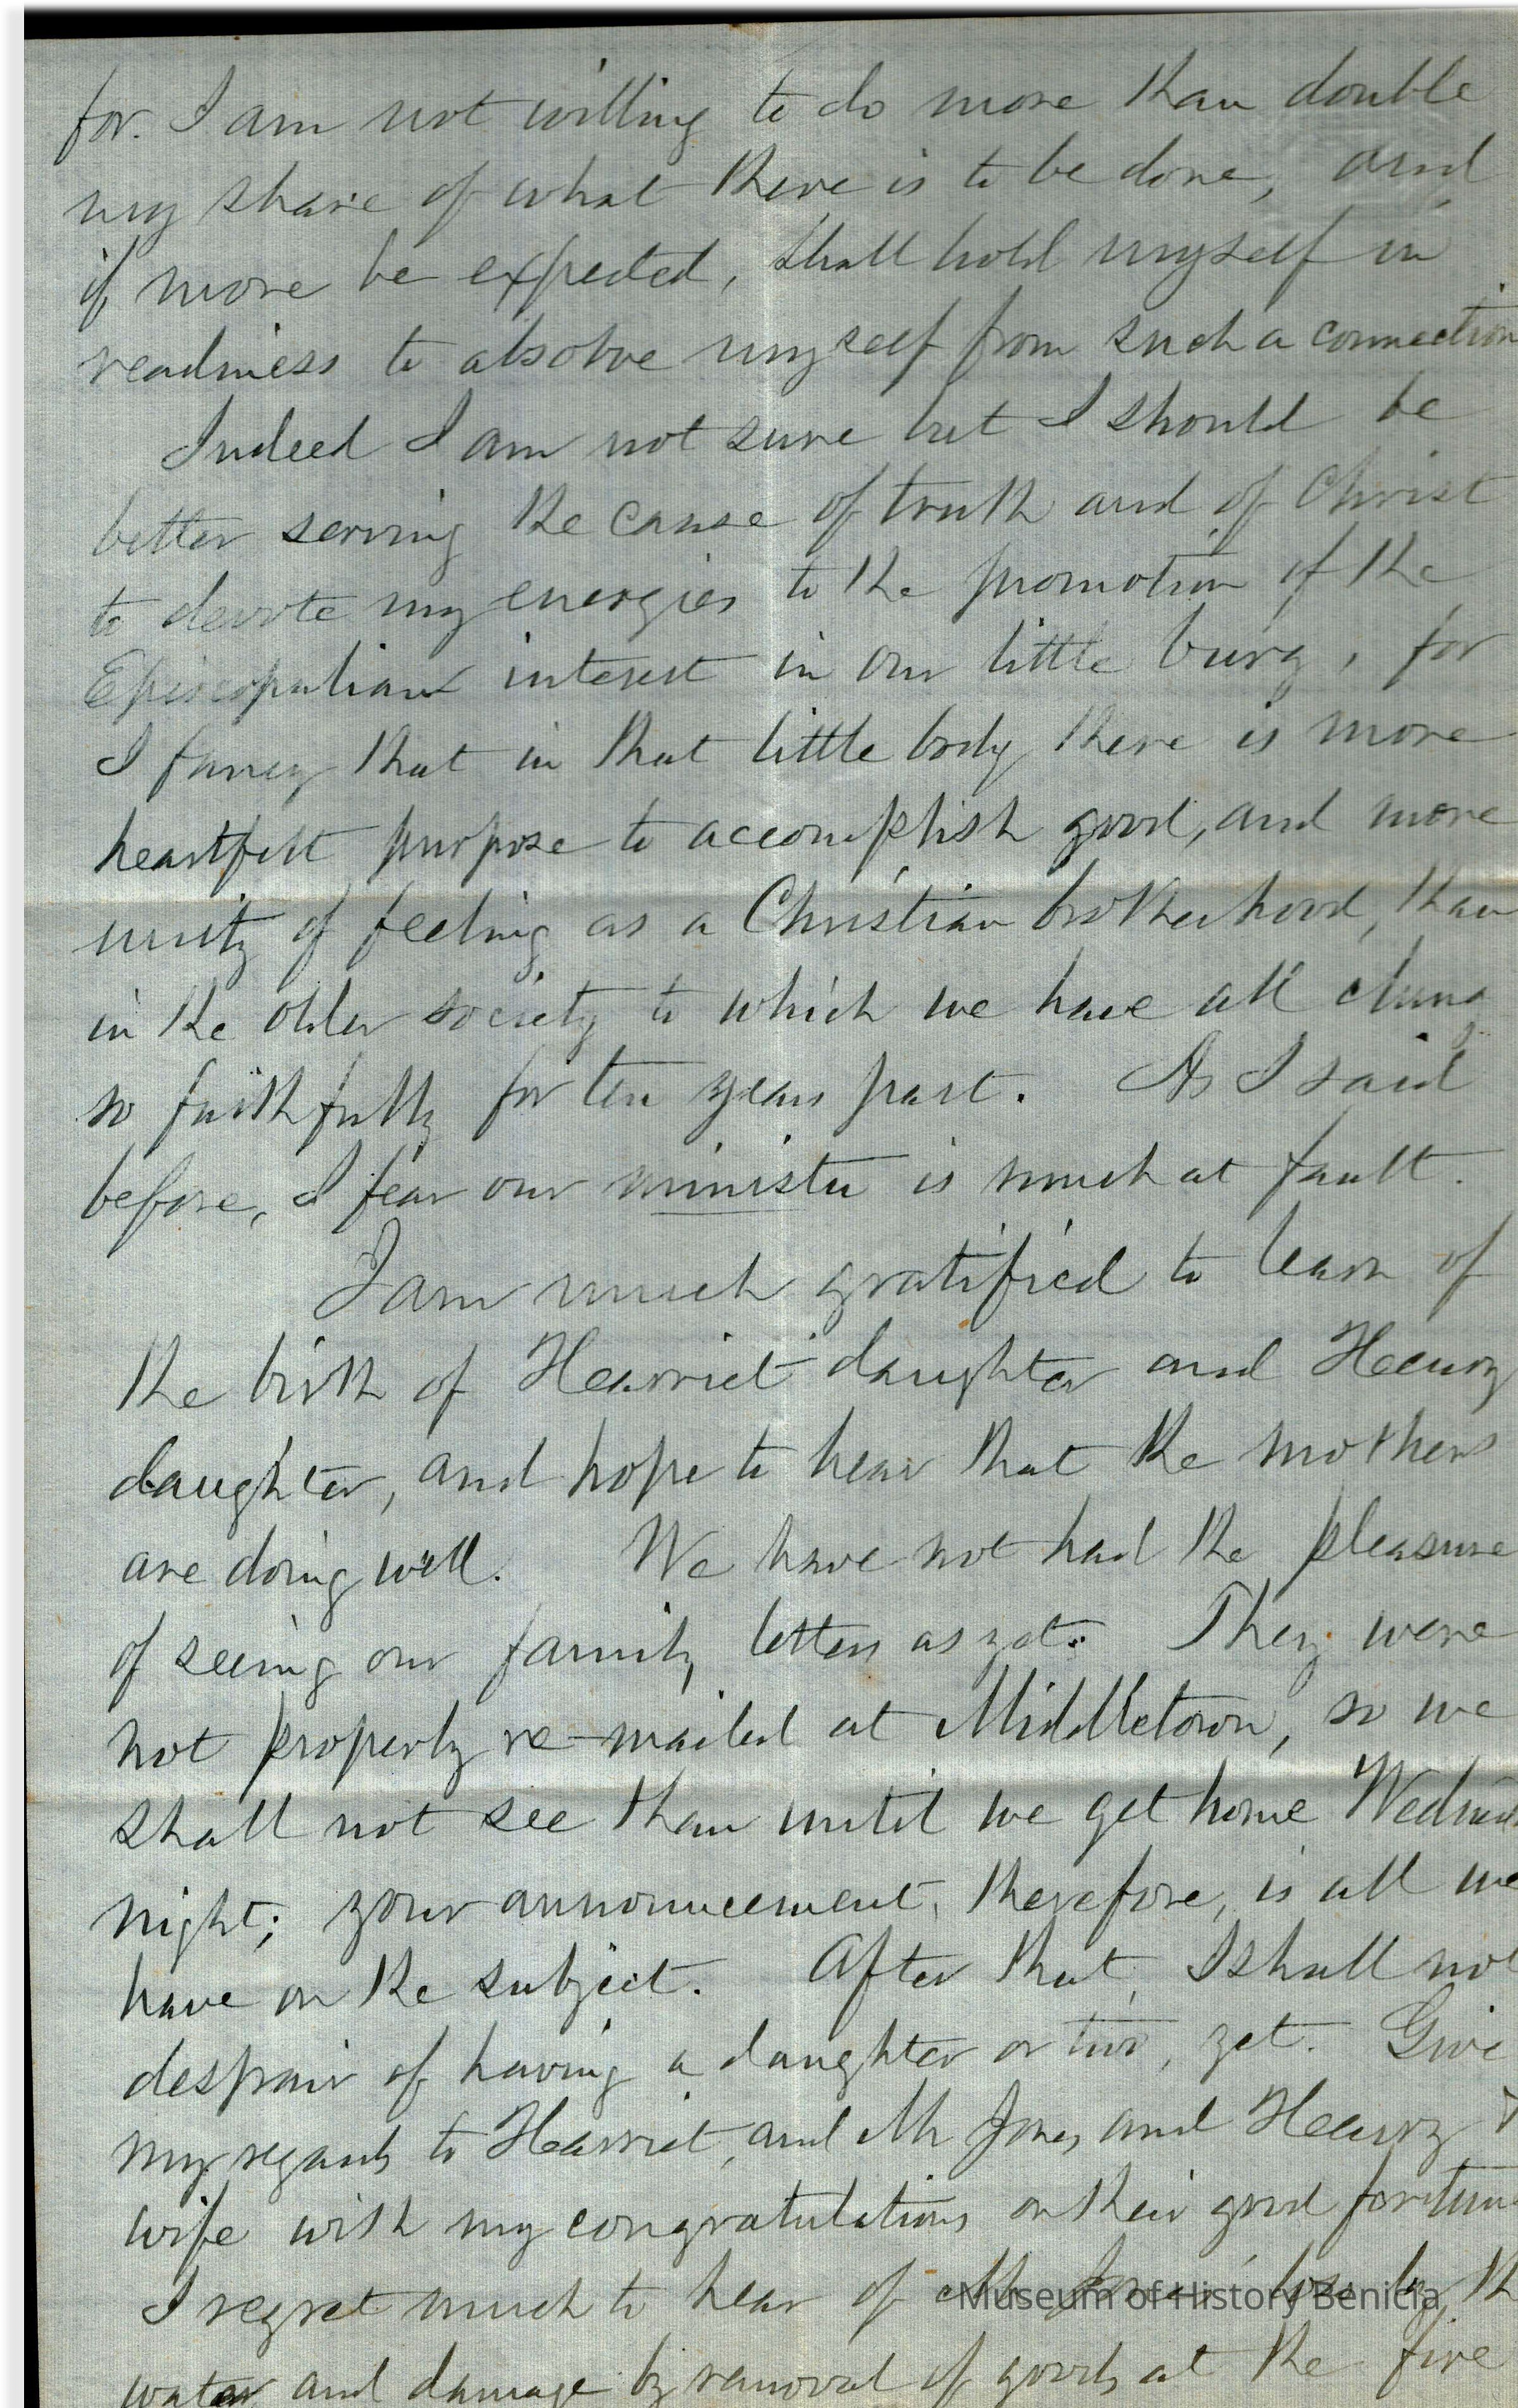 for. I am not willing to do more than double
my share of what there is to be done, and
if more be expected, shall hold myself in
readiness to absolve myself from such a connection
Indeed I am not sure but I should be
better serving the cause of truth and of Christ
to devote my energies to the promotion of the
Episcopalian interest in our little burg, for
I fancy that in that little body there is more
heartfelt purpose to accomplish good, and more
unity of feeling as a Christian brotherhood, than
in the older society to which we have all clung
so faithfully for ten years past. As I said
before, I fear our minister is much at fault.
I am much gratified to learn of
the birth of Harriet daughter and Henry
daughter, and hope to hear that the mothers
are doing well. We have not had the pleasure
of seeing our family letters as yet. They were
not properly re-mailed at Middletown, so we
shall not see them until we get home Wednes
night; your announcement, therefore, is all we
have on the subject. After that, I shall not
despair of having a daughter or two, yet. Give
my regards to Harriet, and Mr Jones and Henry &
wife with my congratulations on their good fortune
I regret much to hear of Mr Jones' loss by th
water and damage by removal of goods at the fire
Museum of History Benicia